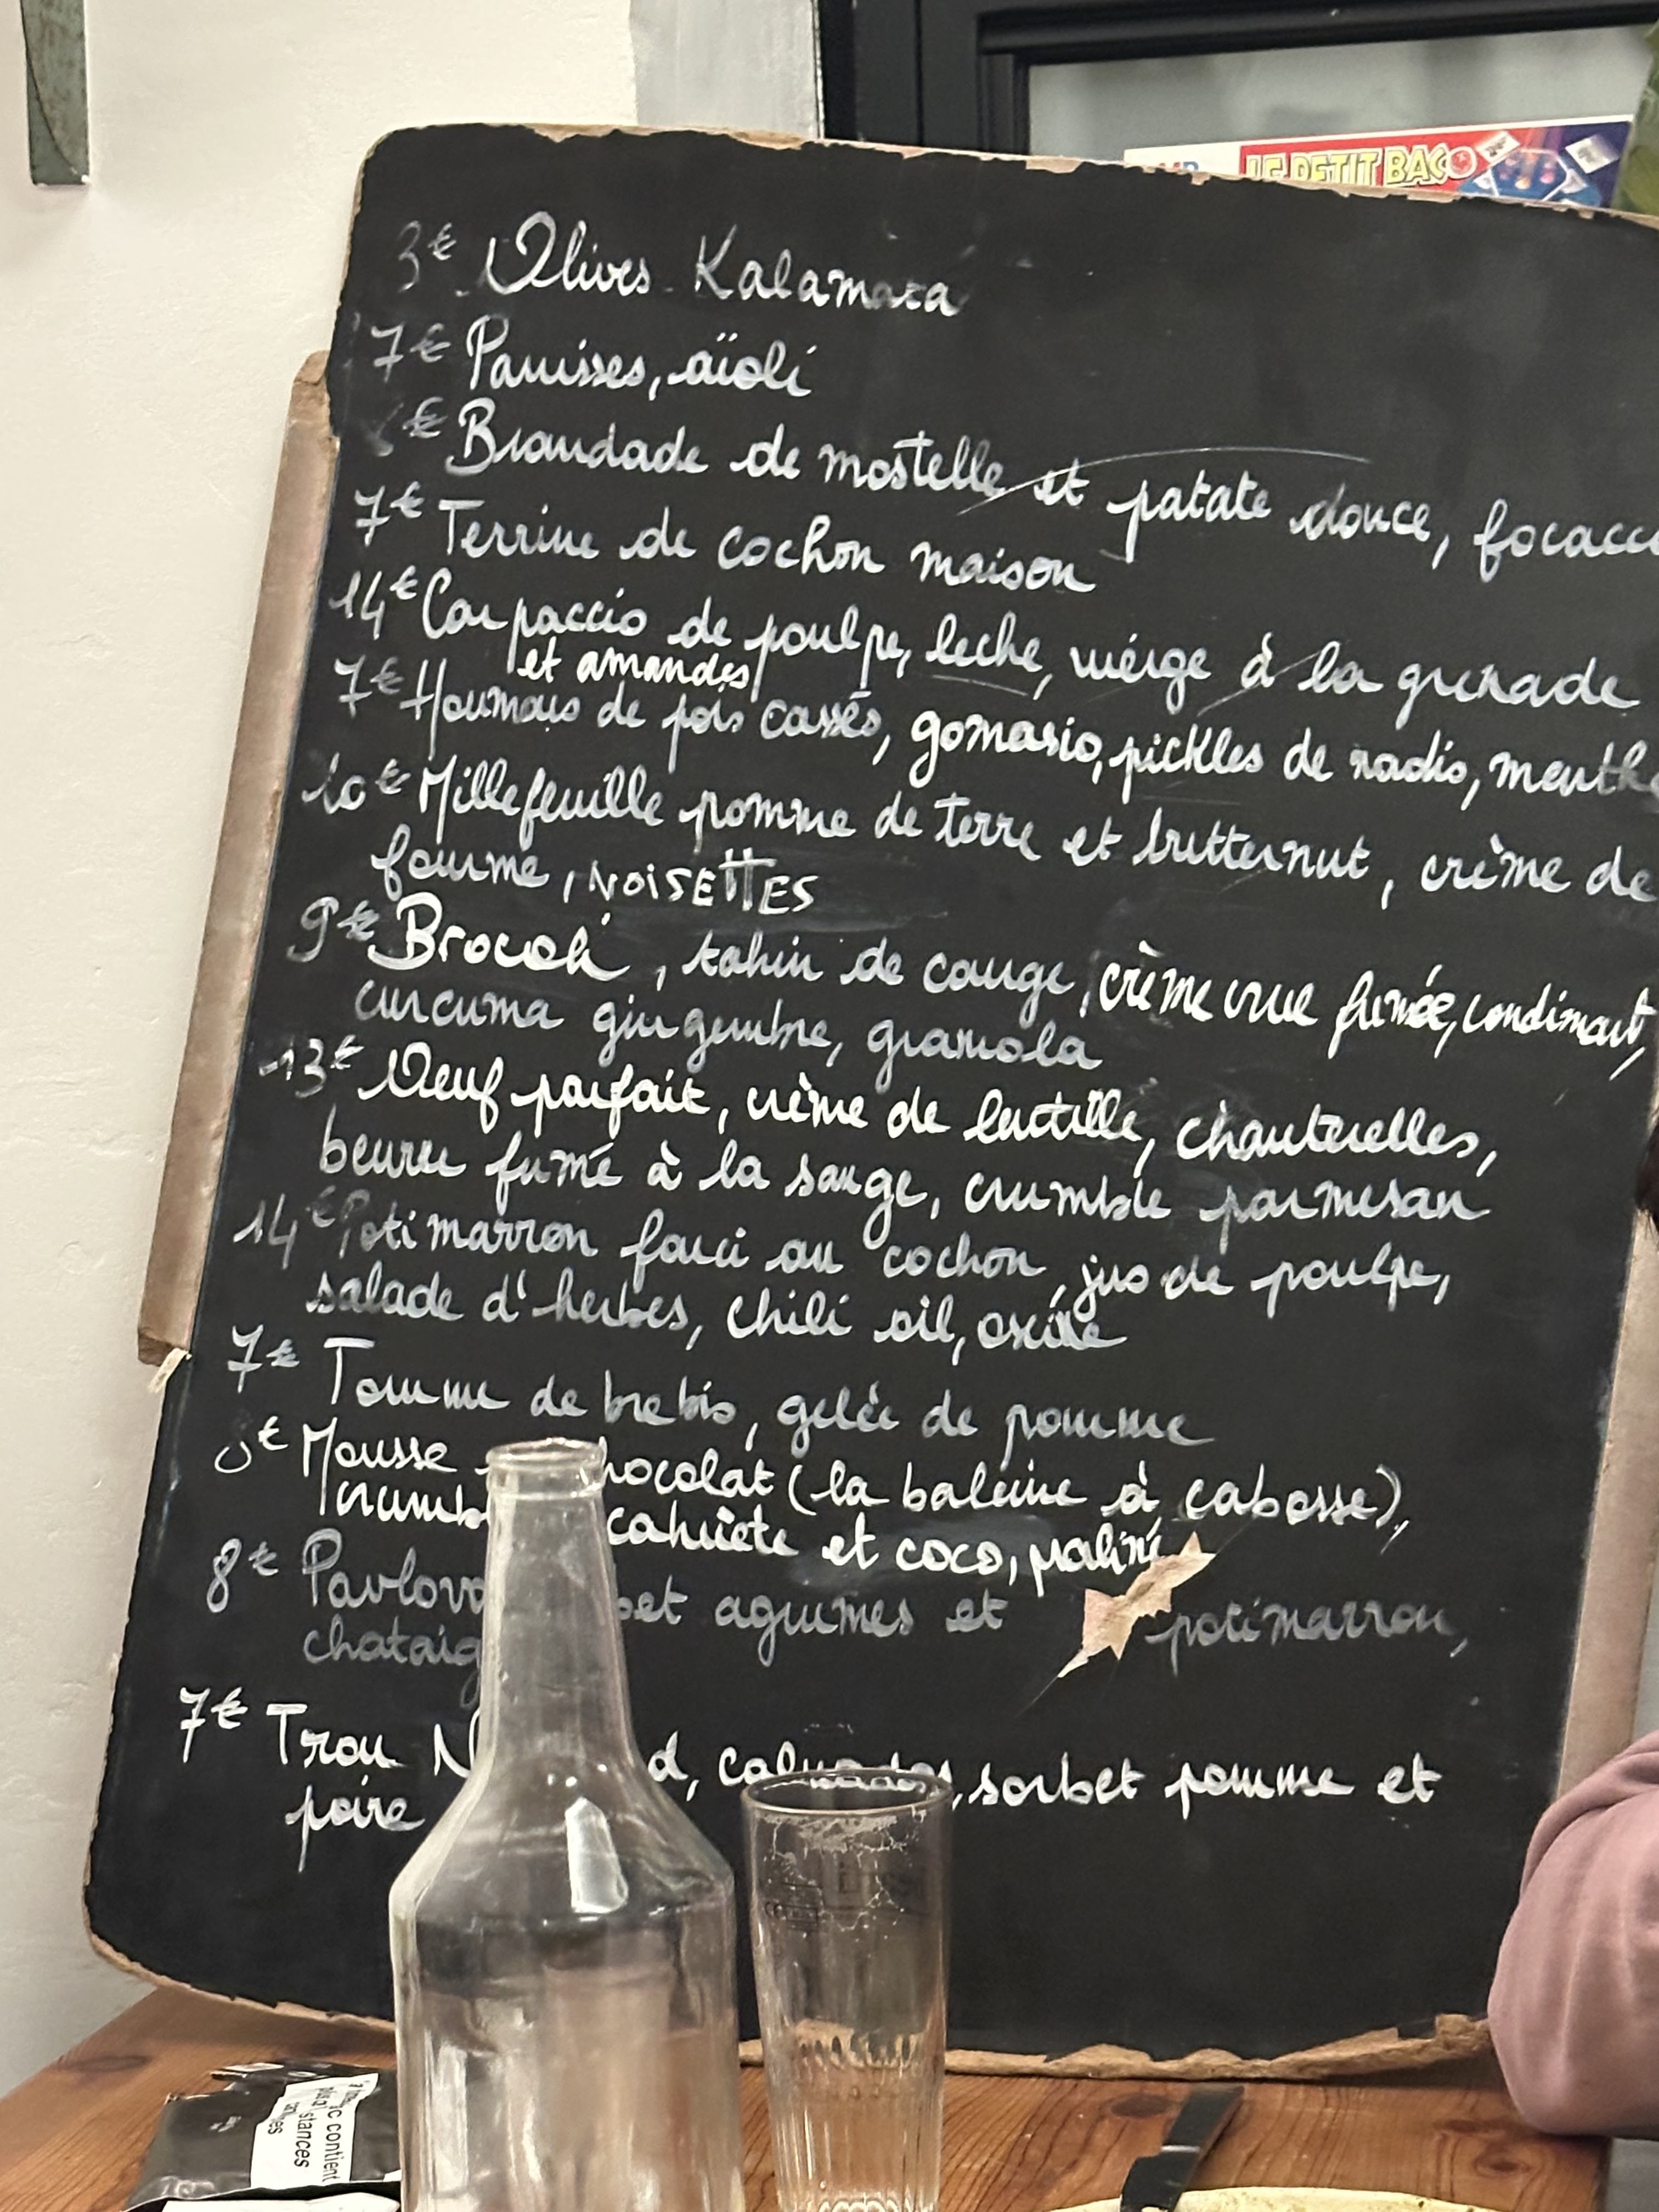 LE PETIT BAC
3€ Olives Kalamata
7€ Panisses, aïoli
€ Brandade de mostelle et patate douce, focacc
7€ Terrine de cochon maison
14€ Carpaccio de poulpe, leche, vierge à la grenade
et amandes
7€ Houmous de pois cassés, gomasio, pickles de radis, menthe
10€ Millefeuille pomme de terre et butternut, crème de
fourme, NOISETTES
9€ Brocoli, tahin de courge, crème crue fumée, condiment,
curcuma gingembre, granola
13€ Oeuf parfait, crème de lentille, chanterelles,
beurre fumé à la sauge, crumble parmesan
14€ Potimarron farci au cochon, jus de poulpe,
salade d'herbes, chili oil, oxalis
7€ Tomme de brebis, gelée de pomme
€ Mousse chocolat (la baleine à cabosse),
crumb cahuète et coco, praliné
8€ Pavlova bet agrumes et potimarron,
chataig
7€ Trou N d, calvados, sorbet pomme et
poire
contient
stances